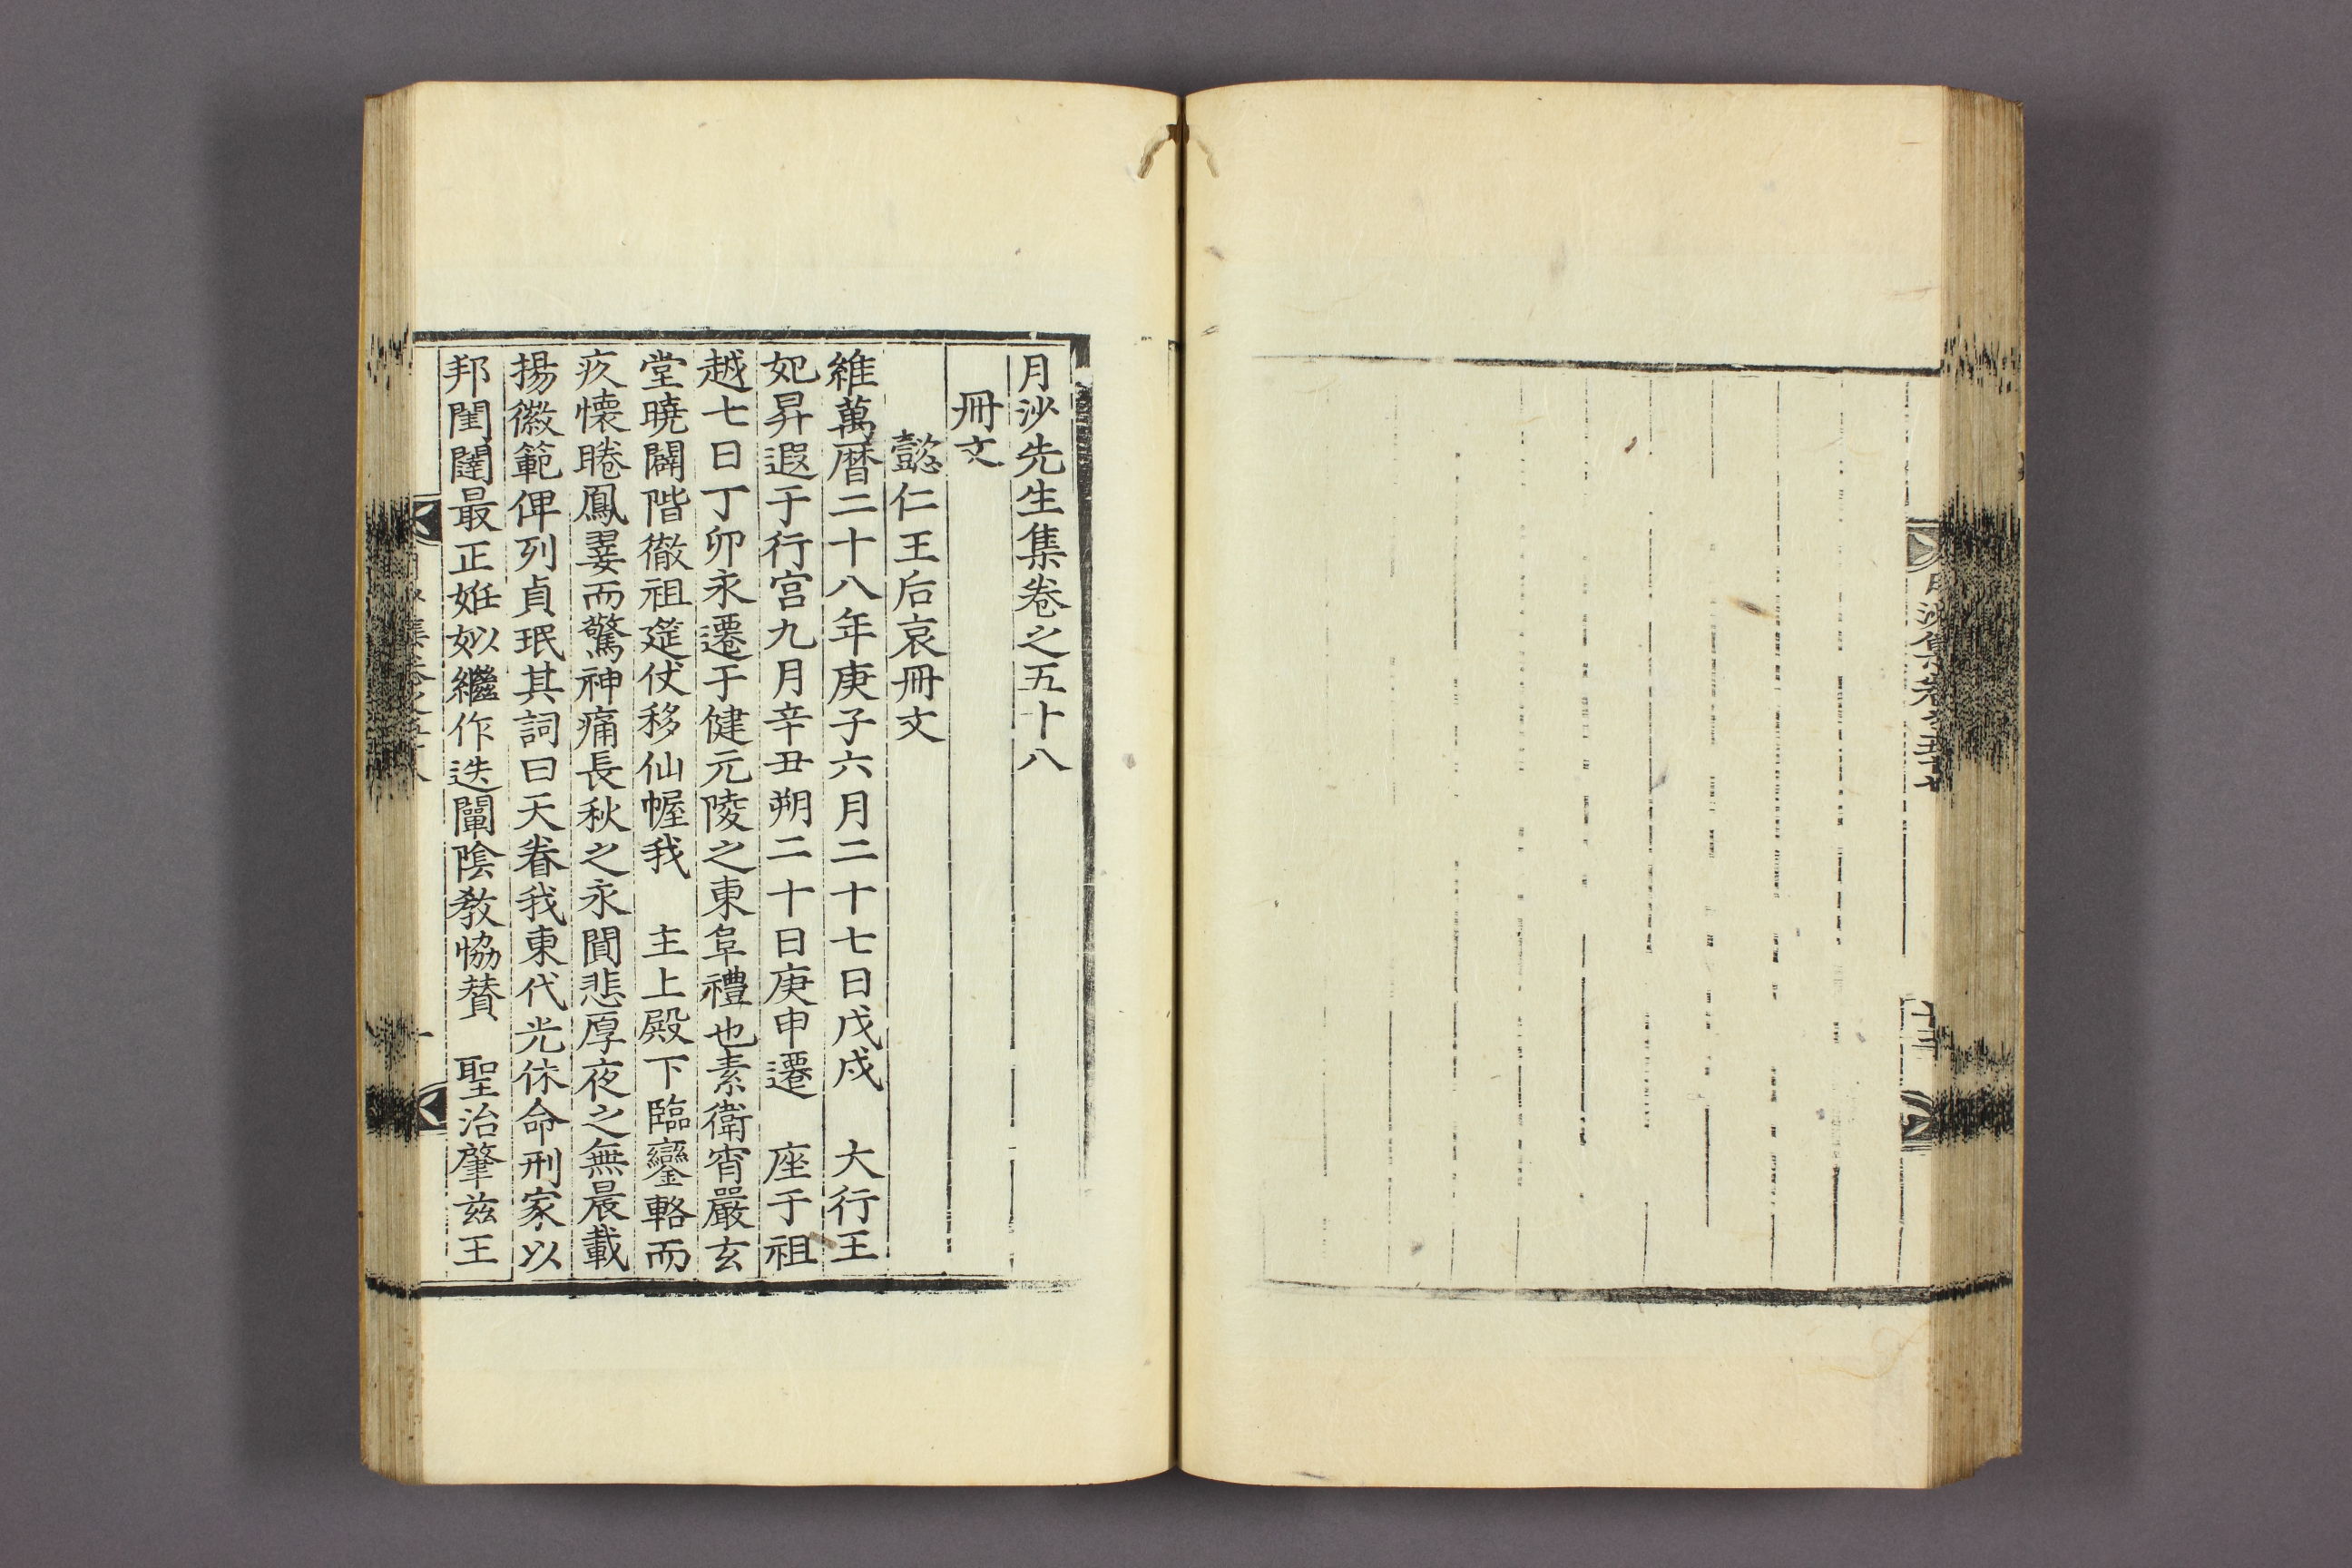 月沙集卷之五十七
十三
月沙先生集卷之五十八
冊文
懿仁王后哀冊文
維萬曆二十八年庚子六月二十七日戊戌 大行王
妃昇遐于行宮九月辛丑朔二十日庚申遷 座于祖
越七日丁卯永遷于健元陵之東阜禮也素衛宵嚴玄
堂曉闢階徹祖筵仗移仙幄我 主上殿下臨鑾輅而
疚懷睠鳳翣而驚神痛長秋之永閴悲厚夜之無晨載
揚徽範俾列貞珉其詞曰天眷我東代光休命刑家以
邦閨闥最正姙姒繼作迭闡陰敎恊賛 聖治肇玆王